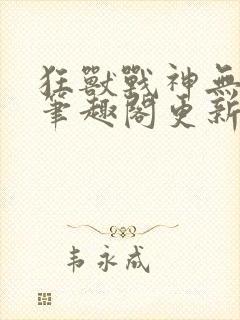 狂獸戰神無
筆趣閣更新
韦永成